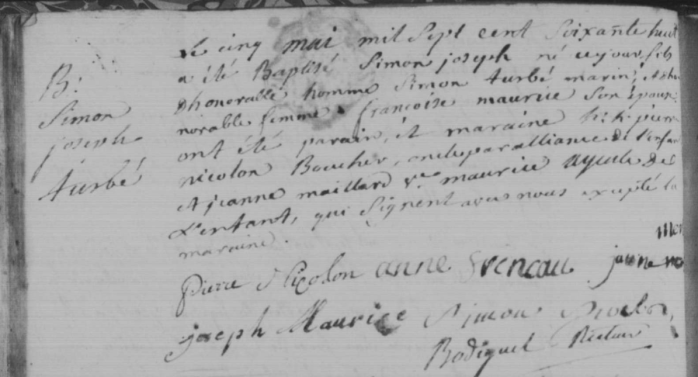 B:
Simon
joseph
turbé
Le cinq mai mil sept cent soixante huit
a été Baptisé Simon joseph né ce jour, fils
d'honorable homme Simon turbé marin, et d'ho
norable femme francoise maurice son épouse
ont été parain, et maraine h. h. pierre
nicolon Boucher, oncle par alliance de l'enfant
et jeanne maillard v.ve maurice ayeule de
L'enfant, qui signent avec nous excepté la
maraine.
pierre Nicolon anne freneau jeanne
joseph Maurice Simon
Rodiguel Recteur